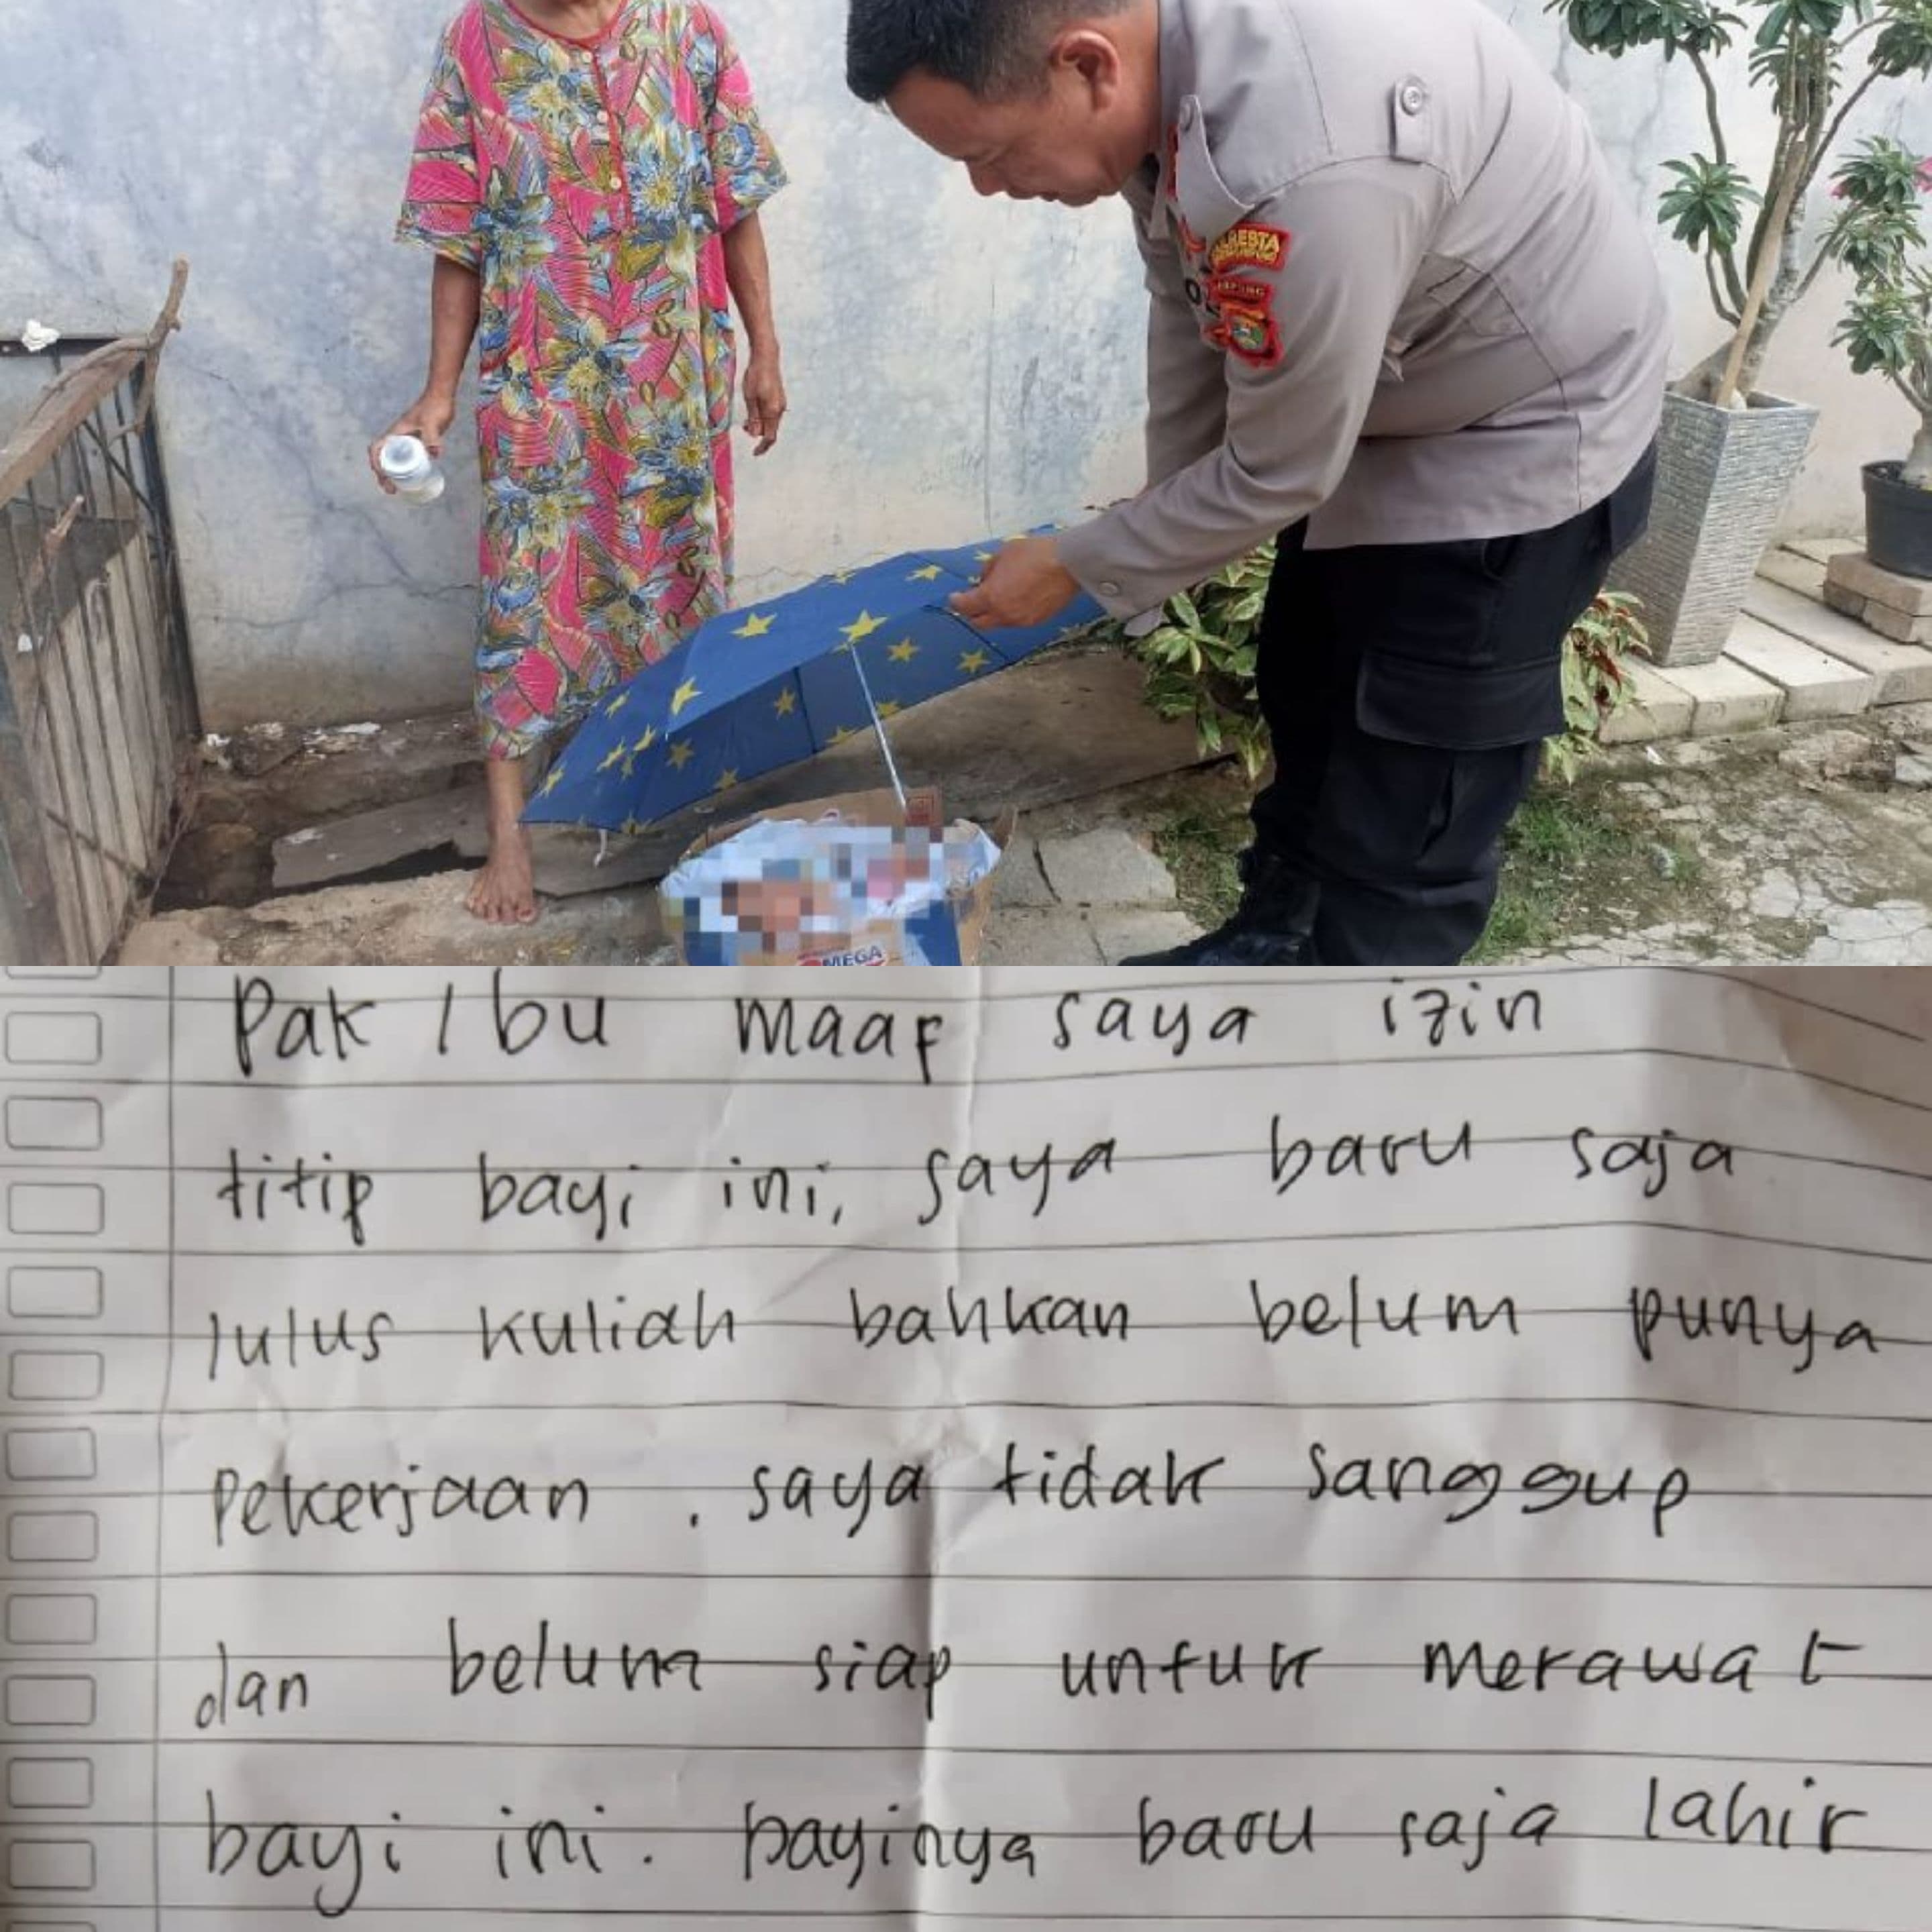 RESTA
MEGA
Pak / bu maaf saya izin
titip bayi ini, saya baru saja
lulus kuliah bahkan belum punya
pekerjaan . saya tidak sanggup
dan belum siap untuk merawat
bayi ini. bayinya baru saja lahir